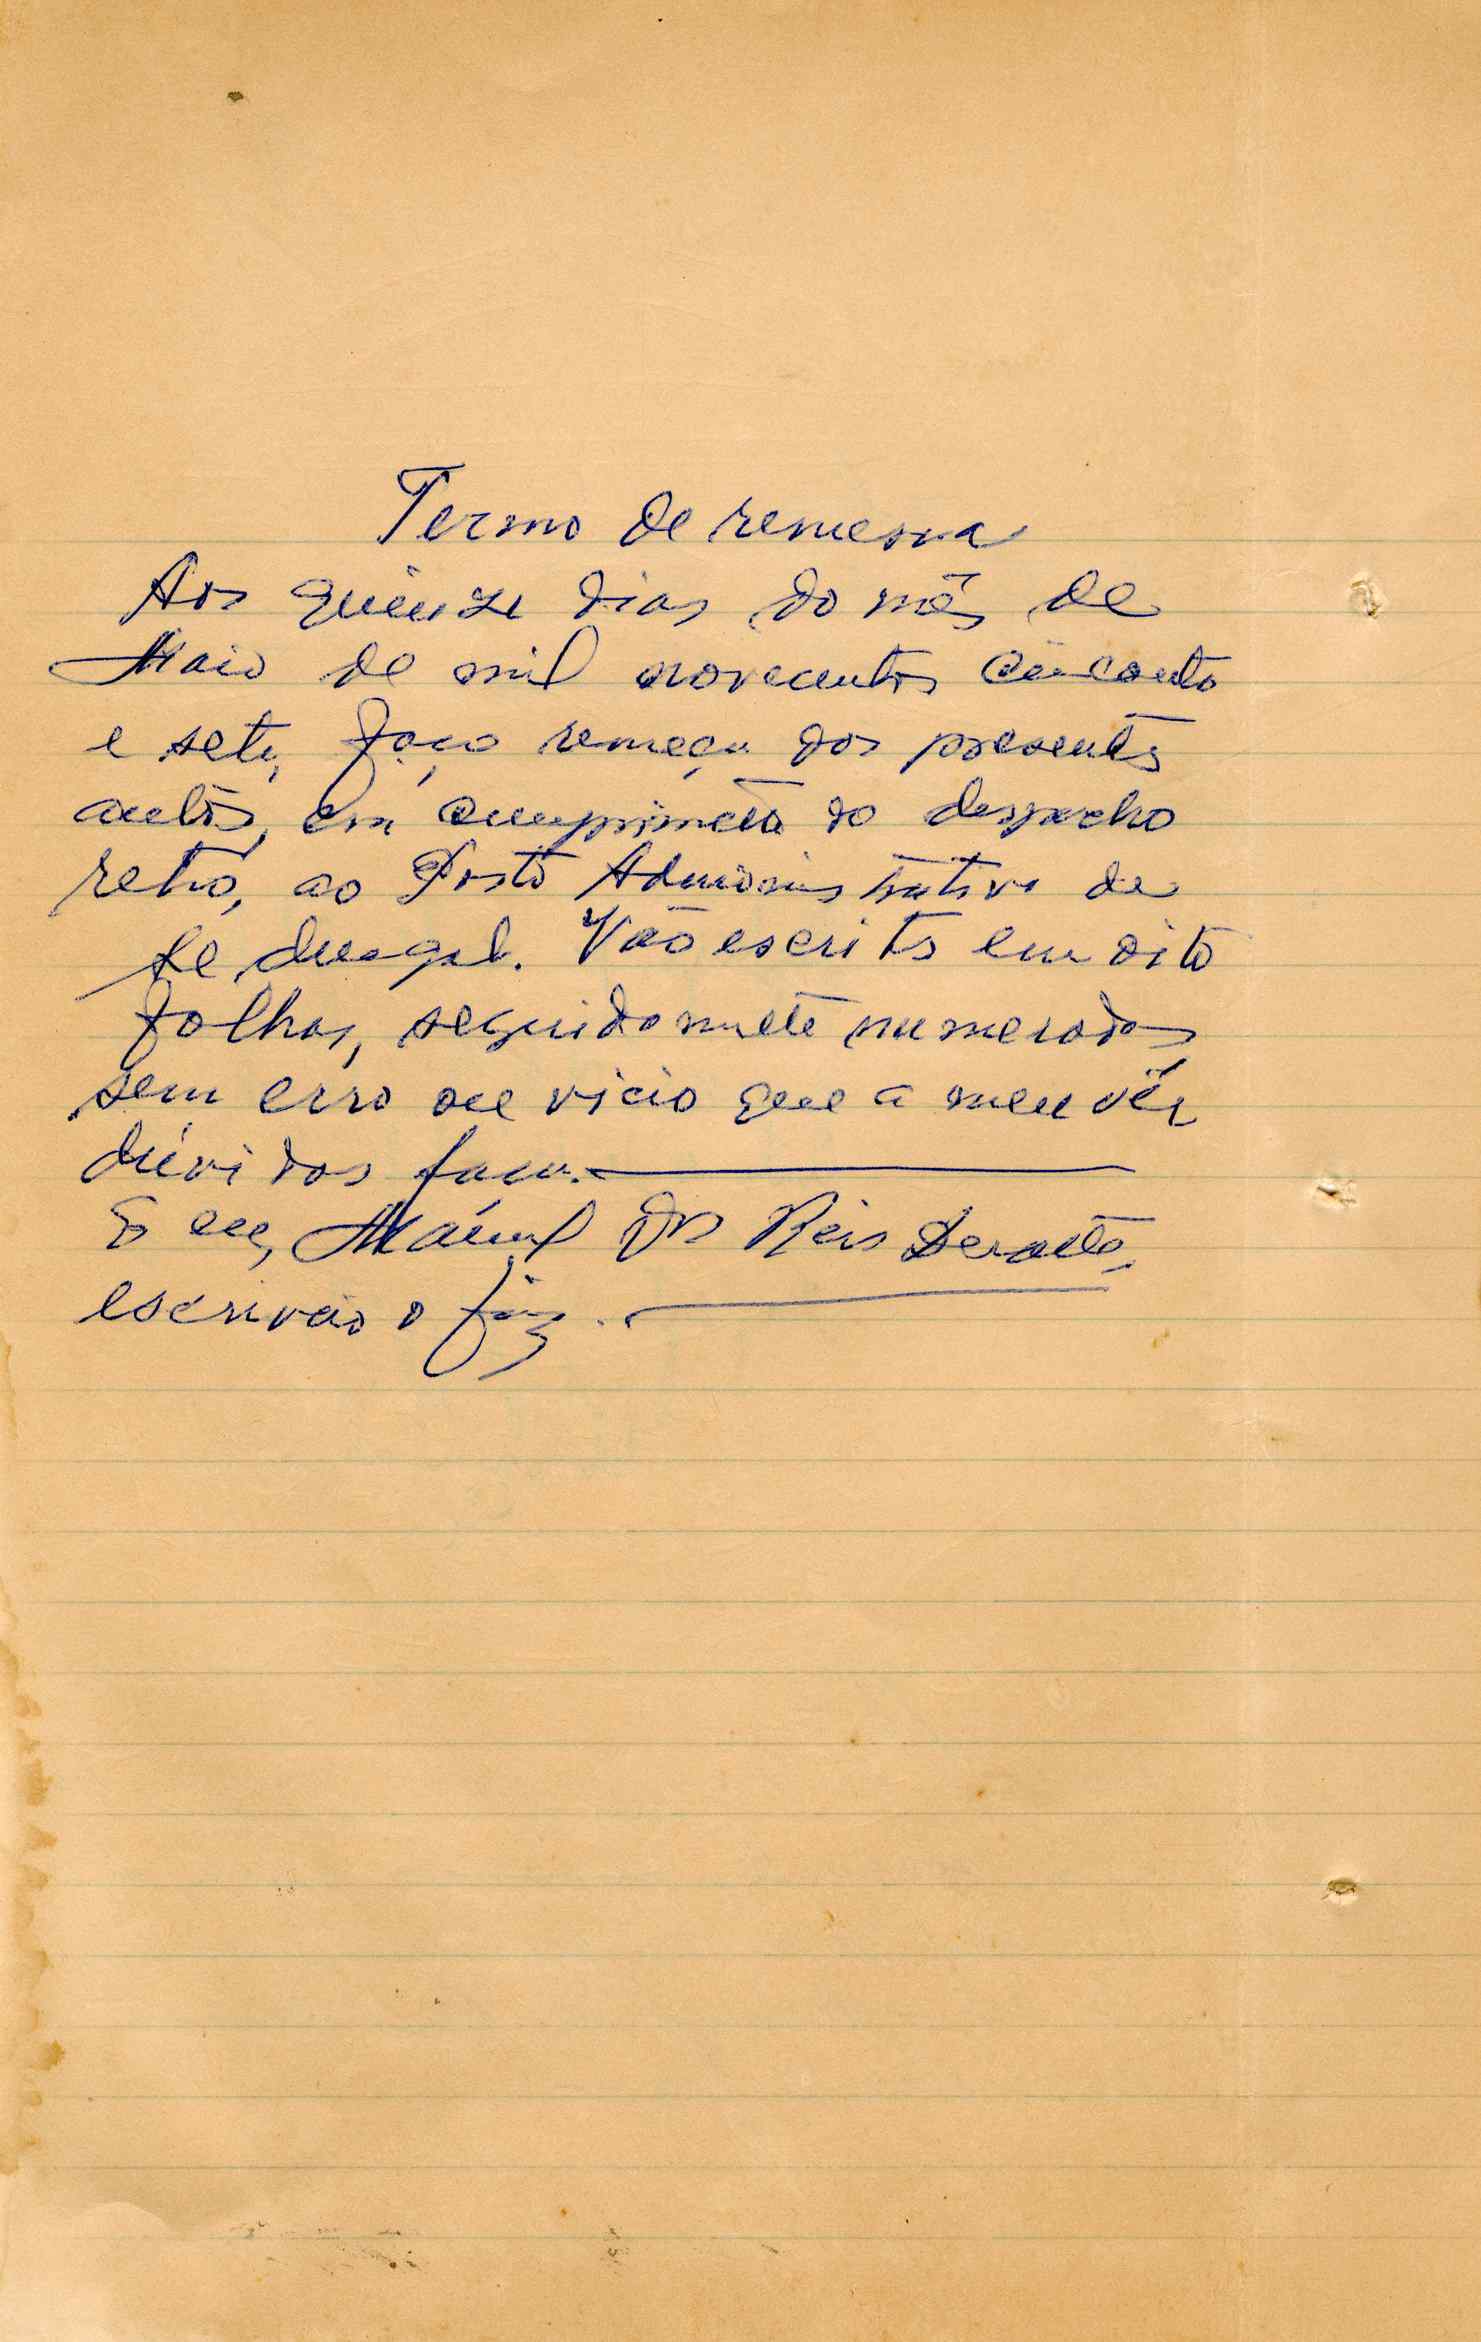 Termo de remessa
Aos quinze dias do mês de
Maio de mil novecentos cincoenta
e sete, faço remeça dos presentes
autos, em cumprimento do despacho
retro, ao Posto Administrativo de
Vão escritos em oito
folhas, seguidamente numeradas
sem erro ou vicio que a meu vêr
dúvidas faça.
E eu, Manuel dos Reis
escrivão o fiz.